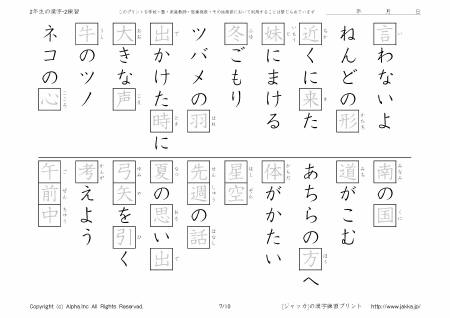 2年生の漢字-2練習
このプリントを学校・塾・家庭教師・医療機関・その他施設において利用することは禁じられています
年 月 日
言わないよ
ねんどの形
近くに来た
妹にまける
冬ごもり
ツバメの羽
出かけた時に
大きな声
牛のツノ
ネコの心
南の国
道がこむ
あちらの方へ
体がかたい
星空
先週の話
夏の思い出
弓矢を引く
考えよう
午前中
Copyright (c) Alpha.Inc All Rights Reserved.
7/10
[ジャッカ]の漢字練習プリント http://www.jakka.jp/